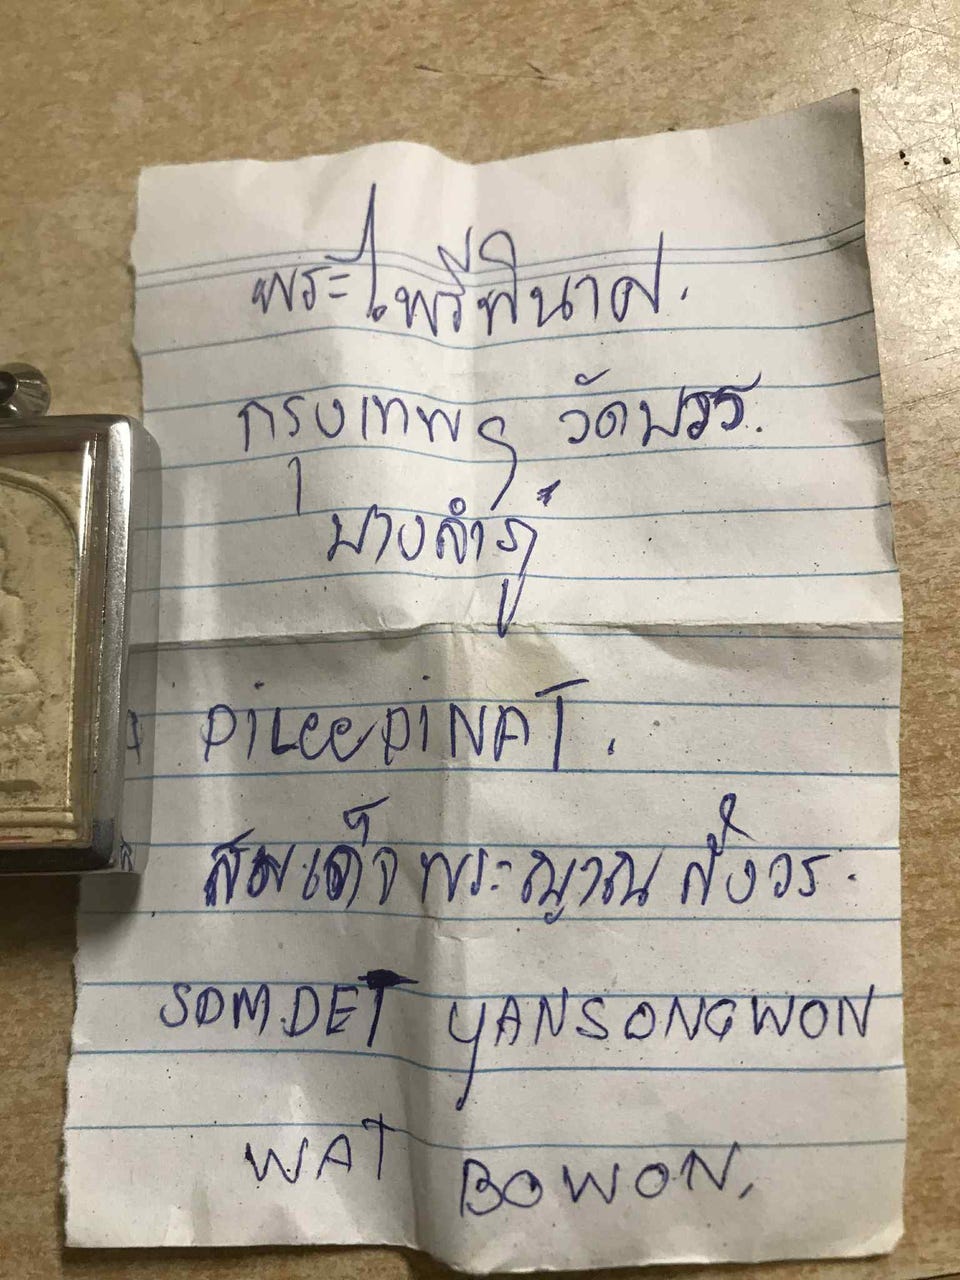 พระไพรีพินาศ.
กรุงเทพฯ วัดบวร.
บางลำภู
PiLeePiNAT.
สมเด็จพระญาณสังวร.
SOMDET YANSONGWON
WAT BOWON,